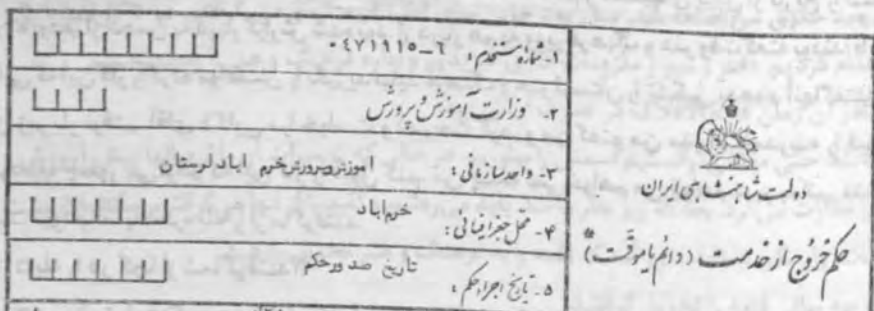 دولت شاهنشاهی ایران
حکم خروج از خدمت (دائم یا موقت)*
۱- شماره مستخدم: ۰٤۷۱۹۱٥-٦
۲- وزارت آموزش و پرورش
۳- واحد سازمانی: اموزش وپرورش خرم اباد لرستان
۴- محل جغرافیائی: خرم اباد
تاریخ صدور حکم
۵- تاریخ اجراء حکم: